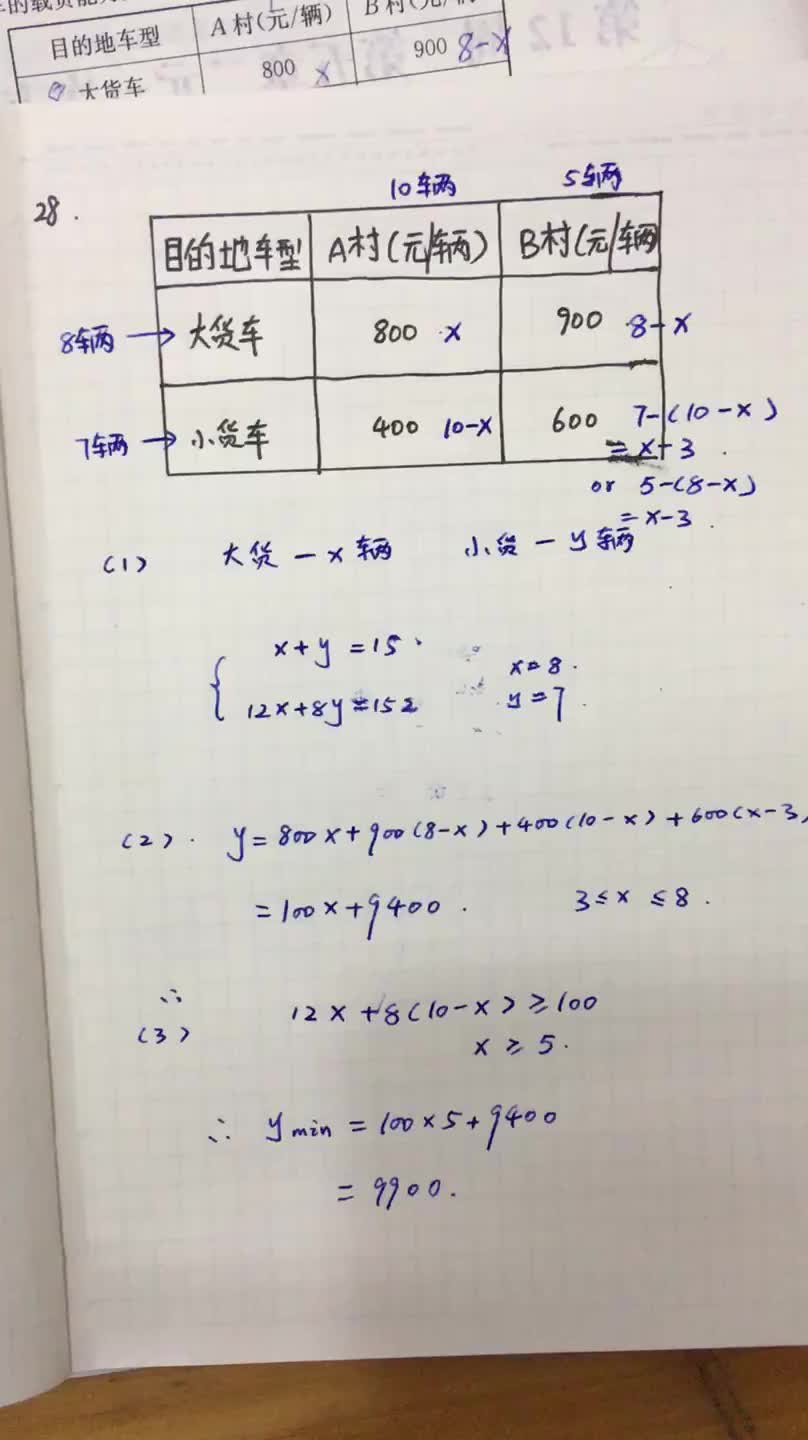 目的地车型 A村(元/辆) B村(元/
大货车 800 x 900 8-x
28.
10车辆 5车辆
目的地车型 A村(元/车辆) B村(元/车辆
8车辆 → 大货车 800 x 900 8-x
7车辆 → 小货车 400 10-x 600 7-(10-x)
= x-3 .
or 5-(8-x)
= x-3 .
(1) 大货 - x 车辆 小货 - y 车辆
x+y=15
12x+8y=152
x=8 .
y=7 .
(2) . y=800x+900(8-x)+400(10-x)+600(x-3)
=100x+9400 . 3≤x≤8 .
∴
(3) 12x+8(10-x)≥100
x≥5.
∴ y min = 100×5+9400
= 9900.